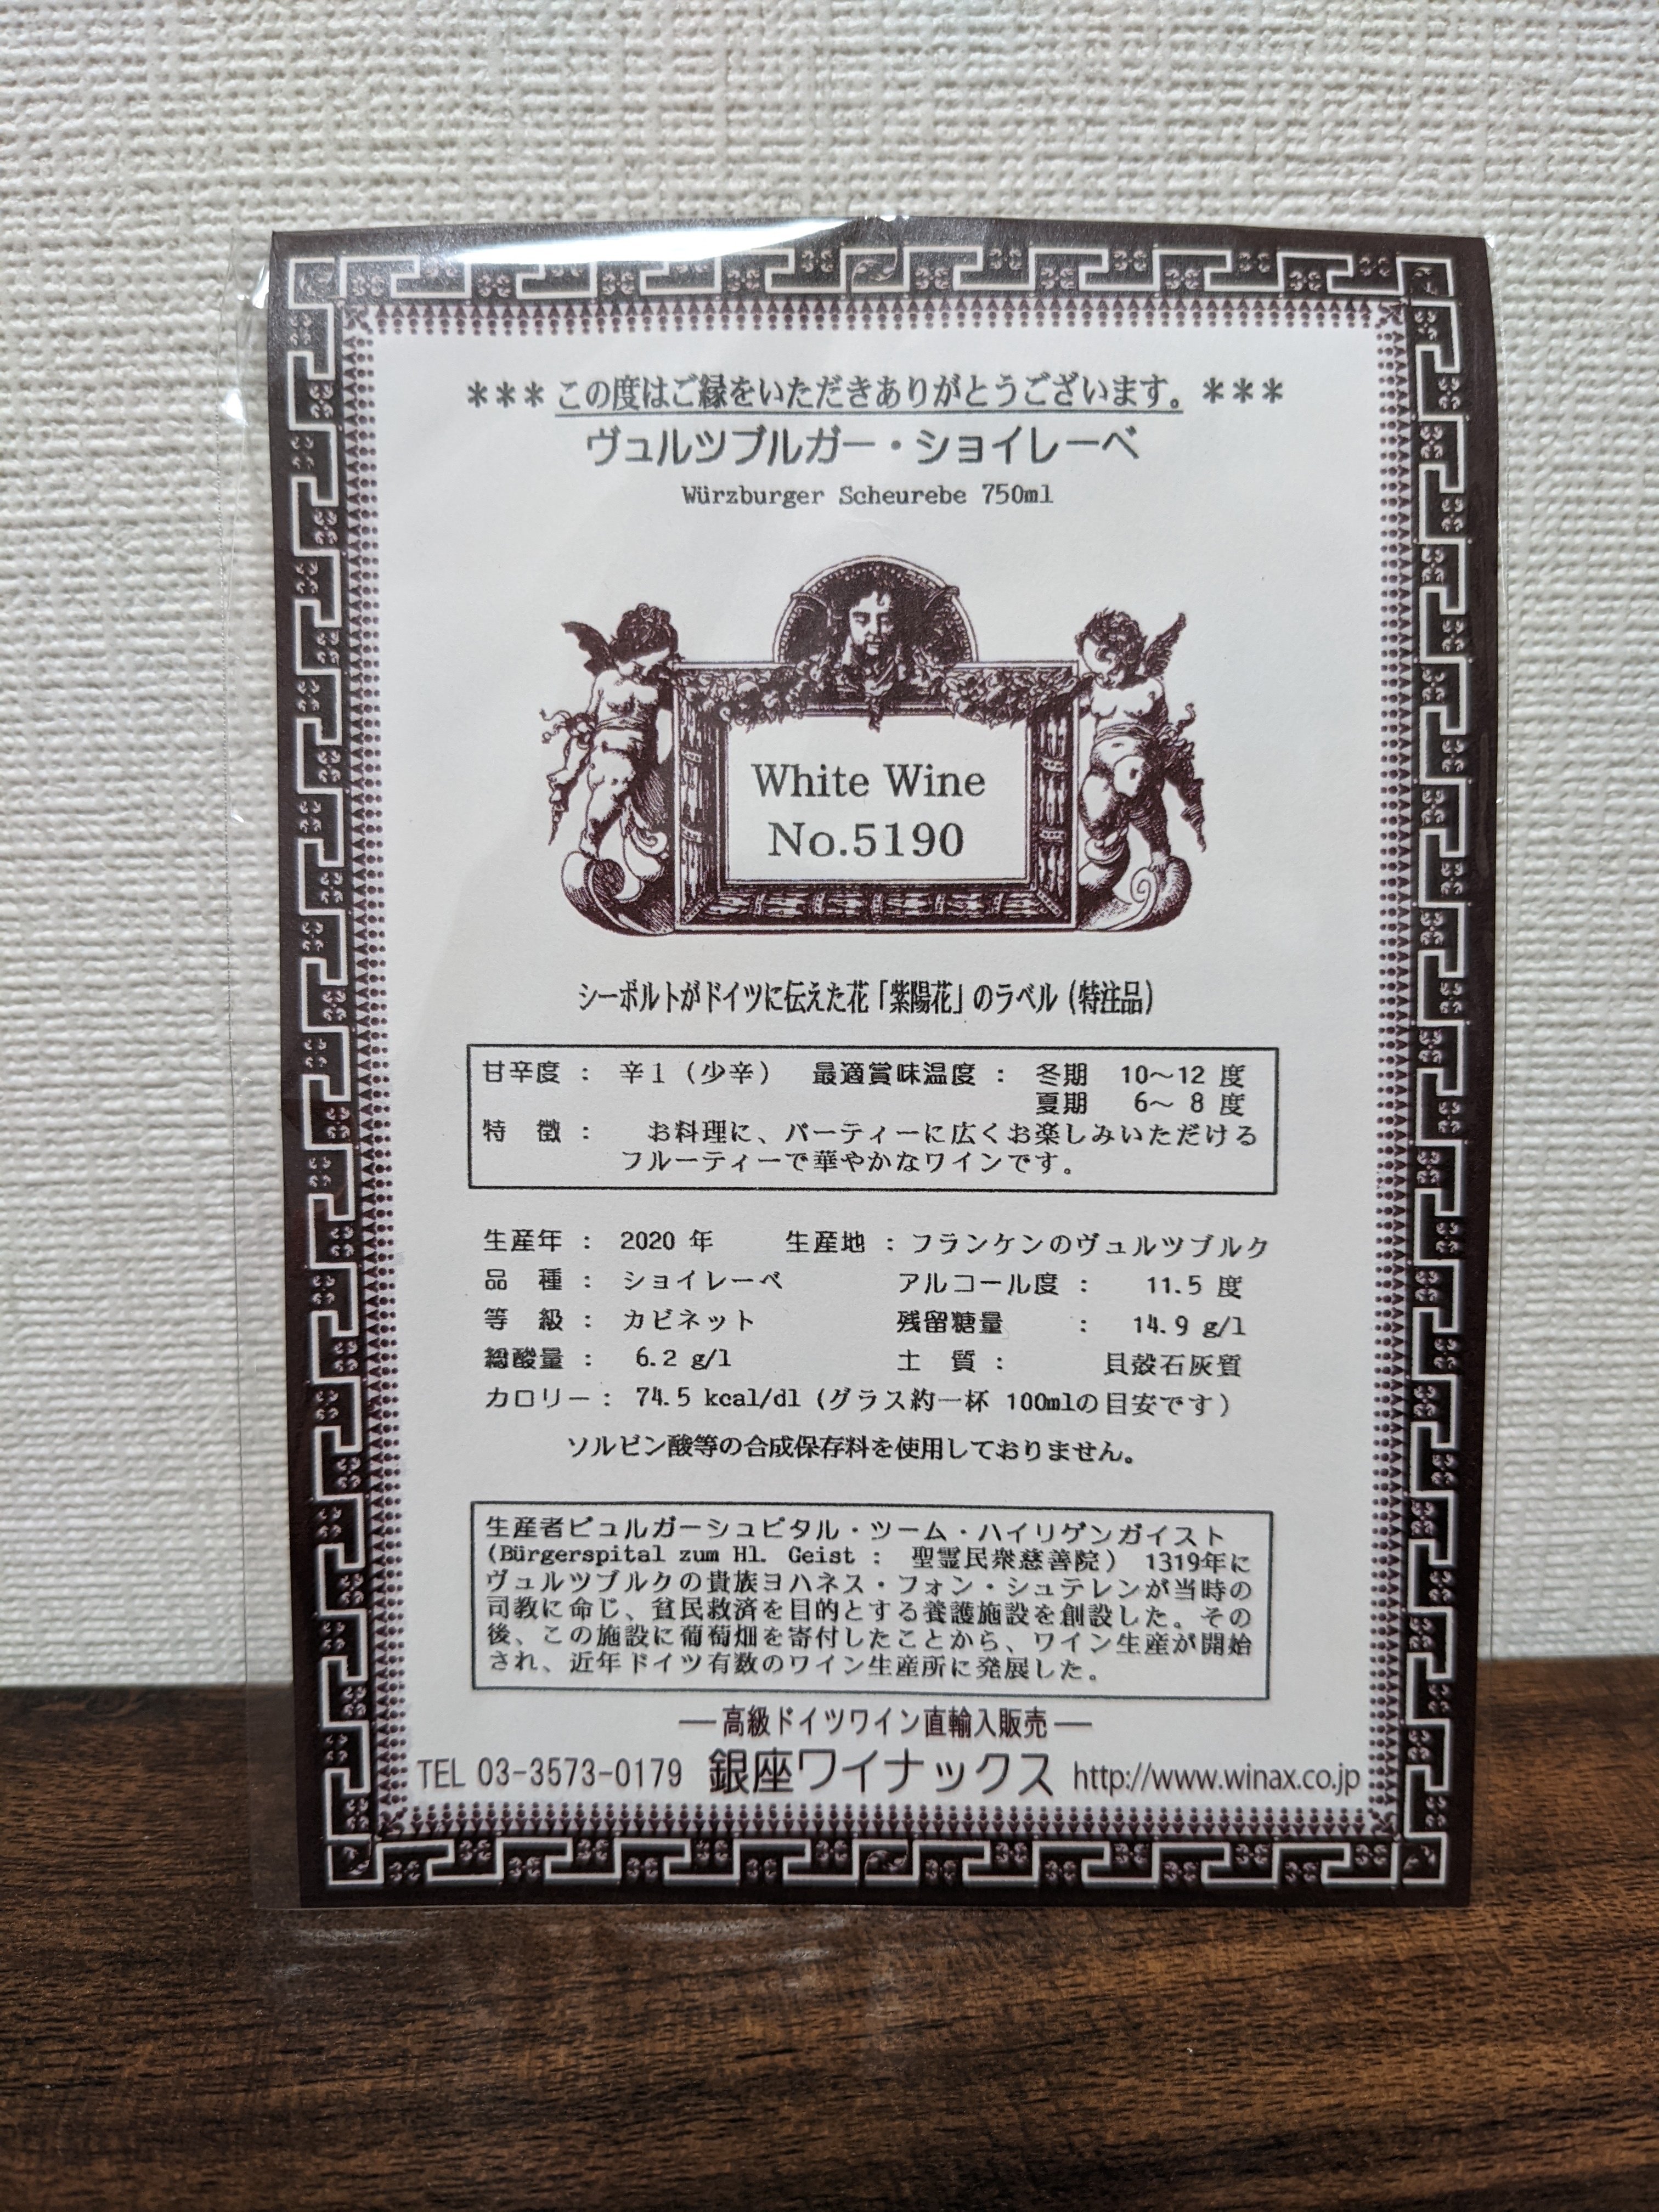 ＊＊＊この度はご縁をいただきありがとうございます。＊＊＊
ヴュルツブルガー・ショイレーベ
Würzburger Scheurebe 750ml
White Wine
No.5190
シーボルトがドイツに伝えた花「紫陽花」のラベル（特注品）
甘辛度 ： 辛１（少辛） 最適賞味温度 ： 冬期 10～12 度
夏期 6～ 8 度
特 徴 ： お料理に、パーティーに広くお楽しみいただける
フルーティーで華やかなワインです。
生産年 ： 2020 年 生産地 ：フランケンのヴュルツブルク
品 種 ： ショイレーベ アルコール度 ： 11.5 度
等 級 ： カビネット 残留糖量 ： 14.9 g/l
総酸量 ： 6.2 g/l 土 質 ： 貝殻石灰質
カロリー： 74.5 kcal/dl (グラス約一杯 100mlの目安です)
ソルビン酸等の合成保存料を使用しておりません。
生産者ビュルガーシュピタル・ツーム・ハイリゲンガイスト
(Bürgerspital zum Hl. Geist : 聖霊民衆慈善院) 1319年に
ヴュルツブルクの貴族ヨハネス・フォン・シュテレンが当時の
司教に命じ、貧民救済を目的とする養護施設を創設した。その
後、この施設に葡萄畑を寄付したことから、ワイン生産が開始
され、近年ドイツ有数のワイン生産所に発展した。
―高級ドイツワイン直輸入販売―
TEL 03-3573-0179 銀座ワイナックス http://www.winax.co.jp